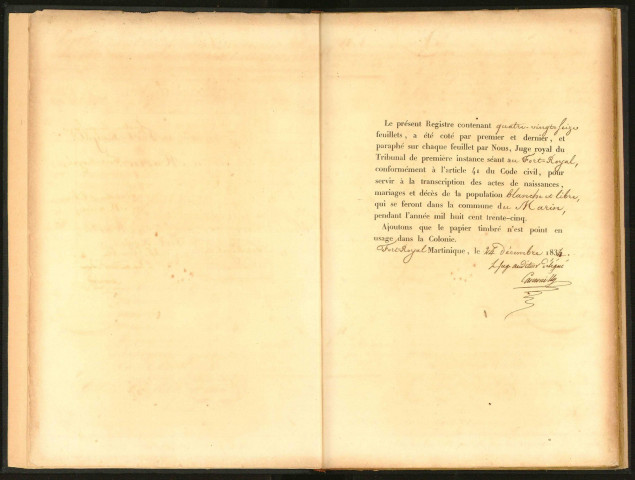 Le présent Registre contenant quatre-vingt-seize
feuillets, a été coté par premier et dernier, et
paraphé sur chaque feuillet par Nous, Juge royal du
Tribunal de première instance séant au Fort-Royal,
conformément à l'article 41 du Code civil, pour
servir à la transcription des actes de naissances,
mariages et décès de la population blanche et libre,
qui se feront dans la commune du Marin,
pendant l'année mil huit cent trente-cinq.
Ajoutons que le papier timbré n'est point en
usage dans la Colonie.
Fort-Royal Martinique, le 24 décembre 1834.
auditeur